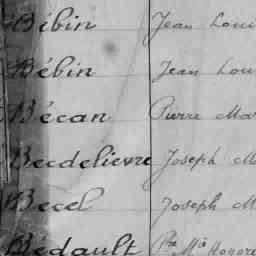 Bébin Jean Loui
Bébin Jean Lou
Bécan Pierre Mar
Becdelievre Joseph M
Becel Joseph M
Bédault Pre Mie Honoré